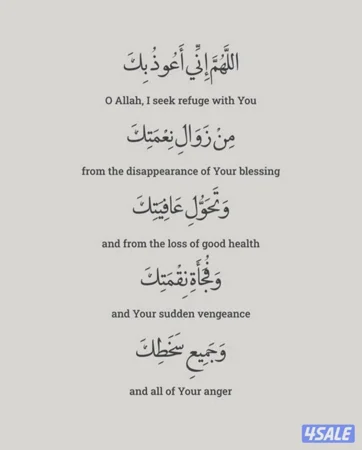 اللَّهُمَّ إِنِّي أَعُوذُ بِكَ
O Allah, I seek refuge with You
مِنْ زَوَالِ نِعْمَتِكَ
from the disappearance of Your blessing
وَتَحَوُّلِ عَافِيَتِكَ
and from the loss of good health
وَفُجَأَةِ نِقْمَتِكَ
and Your sudden vengeance
وَجَمِيعِ سَخَطِكَ
and all of Your anger
4SALE